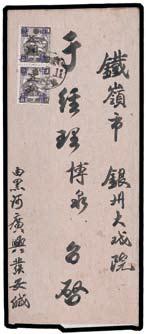 鐵嶺市 銀州大戏院
于經理博泉 台啓
由黑河廣興業安緘